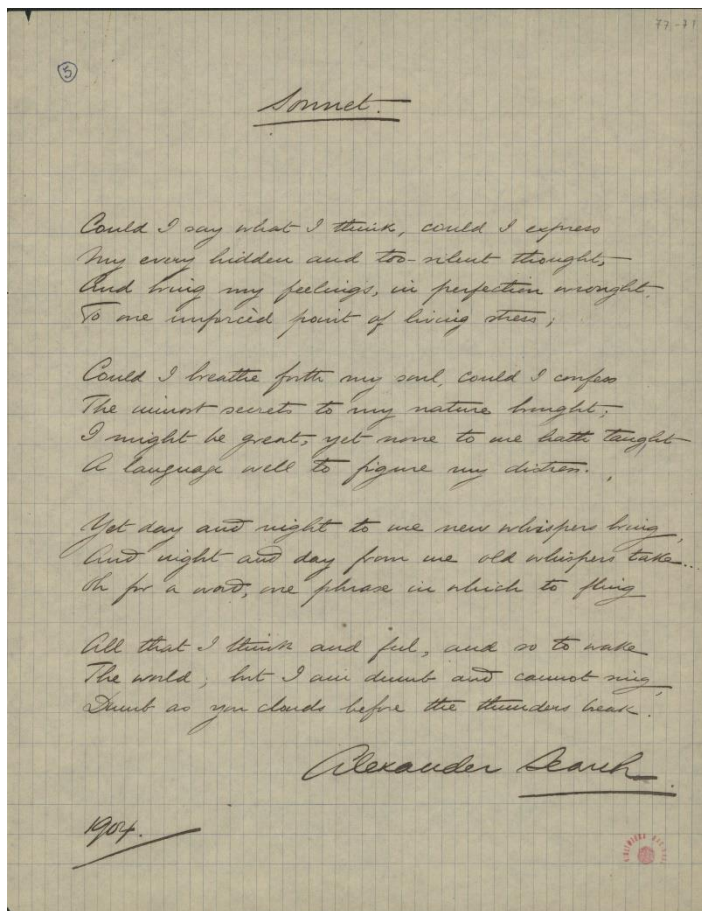 77-71
5
Sonnet.
Could I say what I think, could I express
My every hidden and too-silent thought,
And bring my feelings, in perfection wrought,
To one unforcèd point of living stress;
Could I breathe forth my soul, could I confess
The inmost secrets to my nature brought;
I might be great, yet none to me hath taught
A language well to figure my distress.
Yet day and night to me new whispers bring,
And night and day from me old whispers take...
Oh for a word, one phrase in which to fling
All that I think and feel, and so to wake
The world; but I am dumb and cannot sing,
Dumb as yon clouds before the thunders break.
Alexander Search
1904.